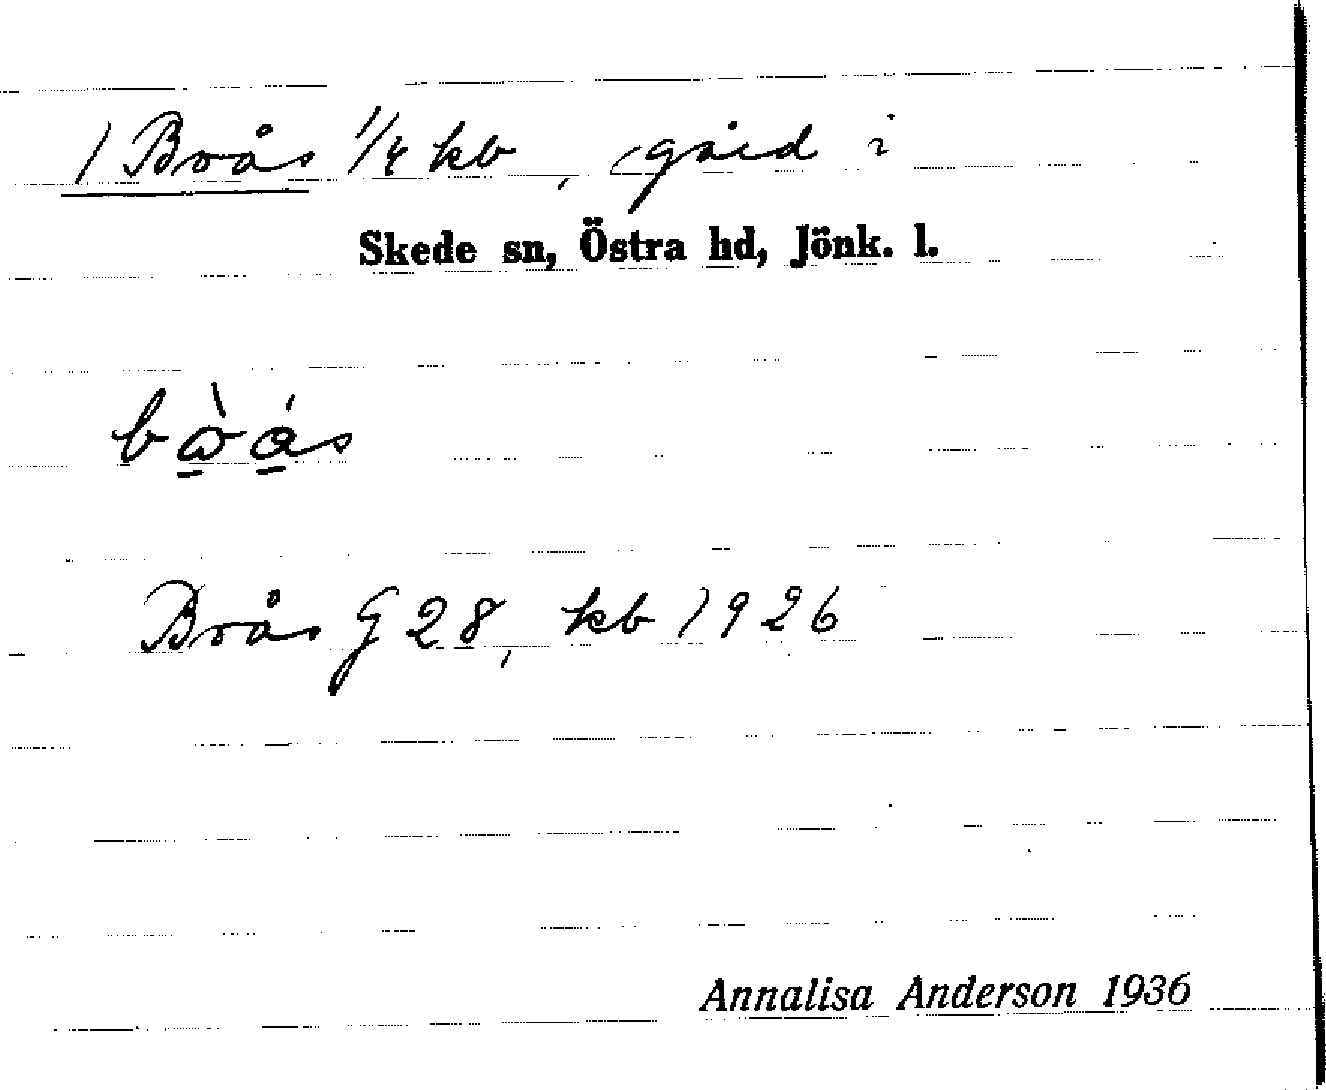 1 Brås 1/4 kb, gård i
Skede sn, Östra hd, Jönk. l.
Brås G 28, kb 1926
Annalisa Anderson 1936